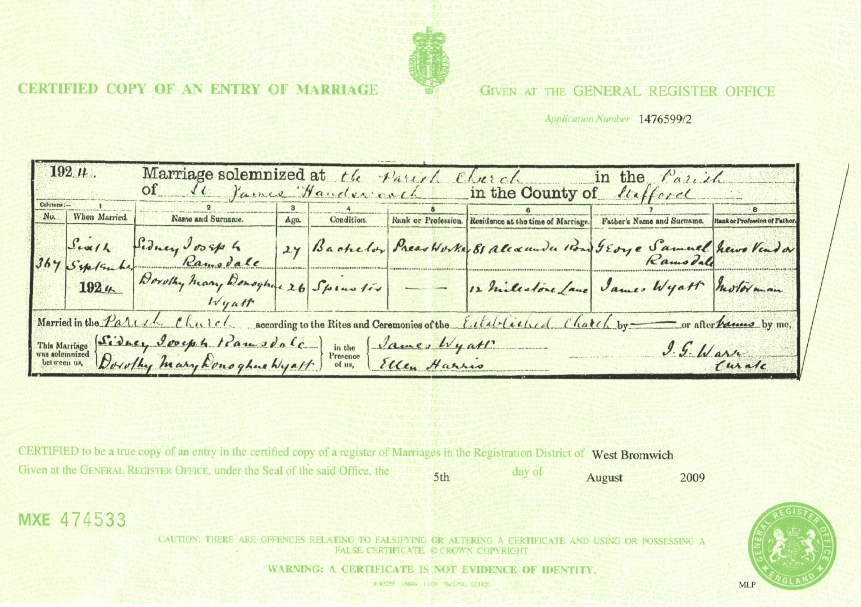 CERTIFIED COPY OF AN ENTRY OF MARRIAGE
GIVEN AT THE GENERAL REGISTER OFFICE
Application Number 1476599/2
1924. Marriage solemnized at the Parish Church in the Parish
of St James Handsworth in the County of Stafford
Columns:— 1 2 3 4 5 6 7 8
No. When Married. Name and Surname. Age. Condition. Rank or Profession. Residence at the time of Marriage. Father's Name and Surname. Rank or Profession of Father.
367 Sixth September 1924
Sidney Joseph Ramsdale 27 Bachelor Press Worker 81 Alexandra Road George Samuel Ramsdale News Vendor
Dorothy Mary Donoghue Wyatt 26 Spinster — — 12 Milestone Lane James Wyatt Motorman
Married in the Parish Church according to the Rites and Ceremonies of the Established Church by — or after banns by me,
This Marriage was solemnized between us, Sidney Joseph Ramsdale Dorothy Mary Donoghue Wyatt
in the Presence of us, James Wyatt Ellen Harris
J.G. Warr Curate
CERTIFIED to be a true copy of an entry in the certified copy of a register of Marriages in the Registration District of West Bromwich
Given at the GENERAL REGISTER OFFICE, under the Seal of the said Office, the 5th day of August 2009
MXE 474533
CAUTION: THERE ARE OFFENCES RELATING TO FALSIFYING OR ALTERING A CERTIFICATE AND USING OR POSSESSING A
FALSE CERTIFICATE. © CROWN COPYRIGHT
WARNING: A CERTIFICATE IS NOT EVIDENCE OF IDENTITY.
GENERAL REGISTER OFFICE
ENGLAND
MLP